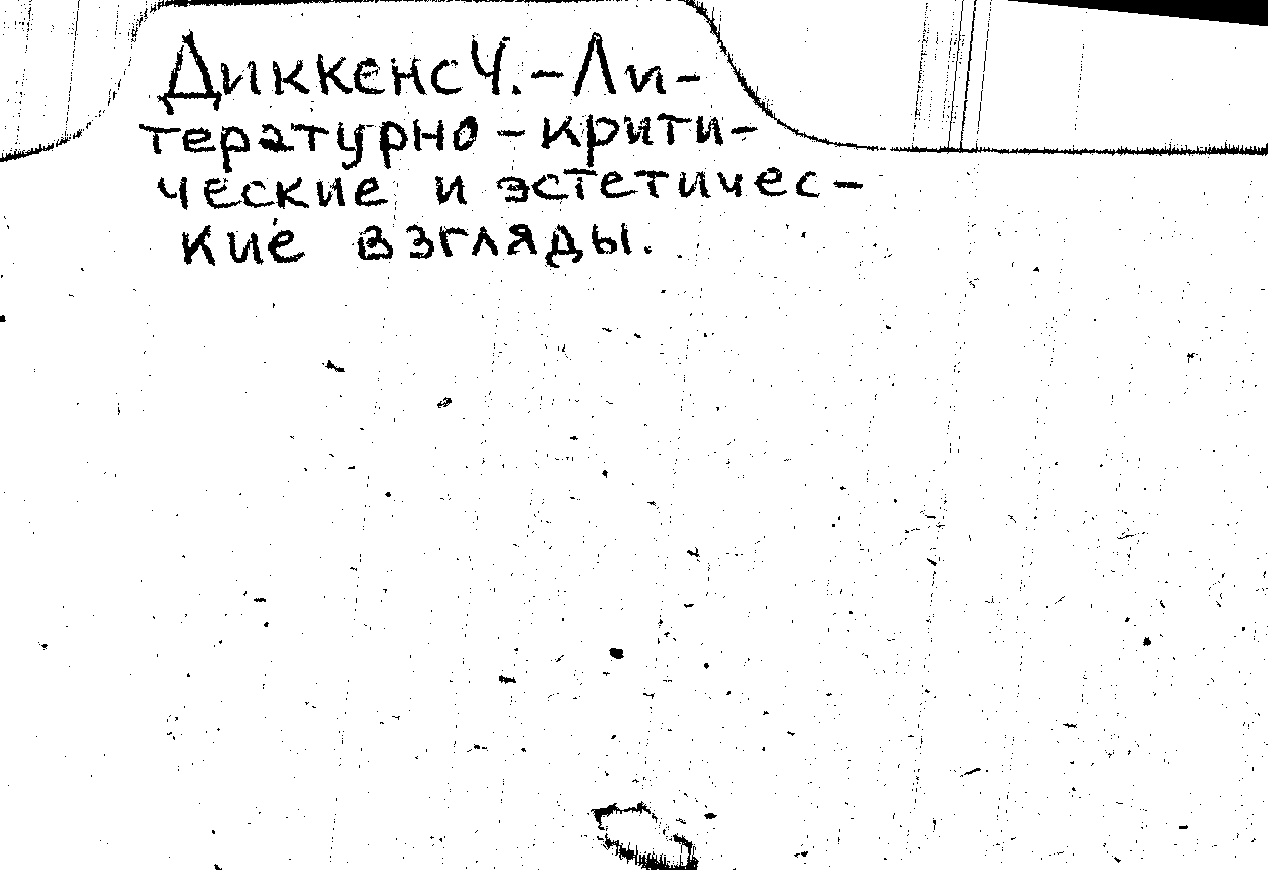 Диккенс Ч. - Ли-
тературно - крити-
ческие и эстетичес-
кие взгляды.